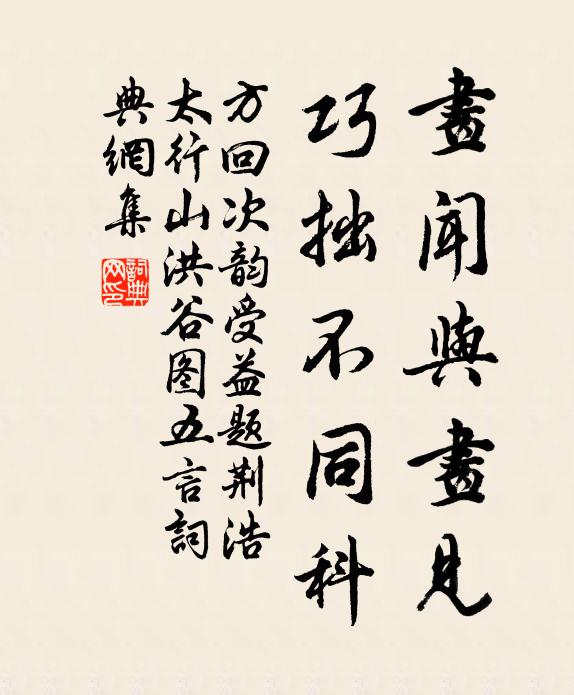 畫聞與畫見
巧拙不同科
方回次韵受益题荆浩
太行山洪谷图五言詞
典網集
詞典网印